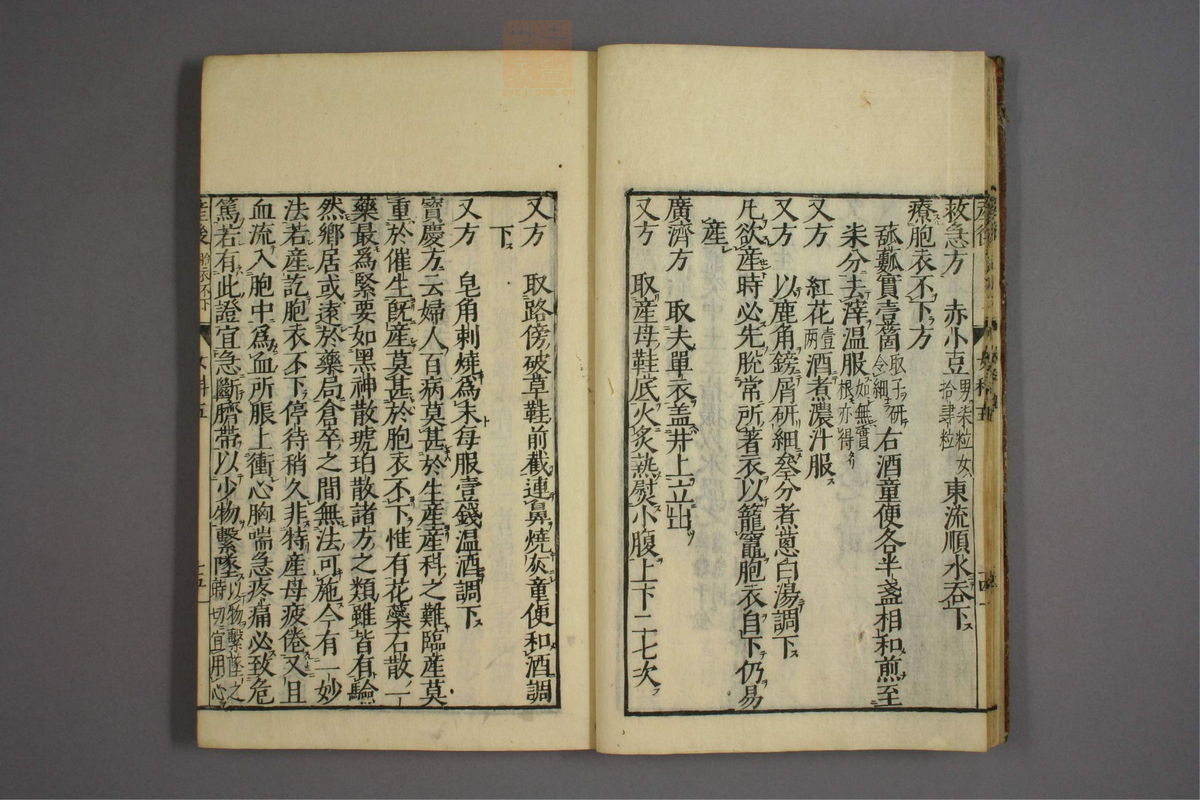 救急方 赤小豆男柒粒女拾肆粒東流順水吞下ス
療胞衣不下方
䑛瓤實壹箇取子研令細右酒童便各半盞相和煎至
柒分去滓温服如無實根亦得
又方 紅花壹兩酒煮濃汁服ス
又方 以鹿角鎊屑研細叄分煮蔥白湯調下ス
凡欲產時必先脫常所著衣以籠竈胞衣自下仍易
產
廣濟方 取夫單衣盖井上立出
又方 取產母鞋底火炙熱熨小腹上下二七次
又方 取路傍破草鞋前截連鼻燒灰童便和酒調
下ス
又方 皂角刺燒爲末每服壹錢温酒調下ス
寶慶方云婦人百病莫甚於生產產科之難臨產莫
重於催生旣產莫甚於胞衣不下惟有花蘂石散一
藥最爲緊要如黑神散琥珀散諸方之類雖皆有驗
然鄉居或遠於藥局倉卒之間無法可施今有一妙
法若產訖胞衣不下停待稍久非特產母疲倦又且
血流入胞中爲血所脹上衝心胸喘急疼痛必致危
篤若有此證宜急斷臍帶以少物繫墜以物繫墜之時切宜用心
產後 胞衣不下 女科五